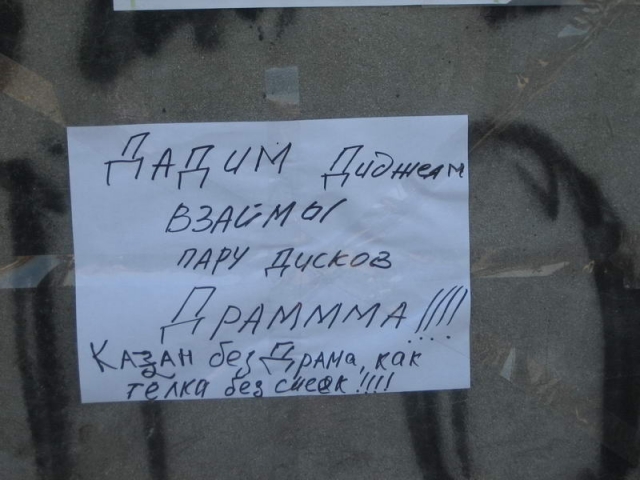 ДАДИМ Диджеам
ВЗАЙМЫ
ПАРУ ДИСКОВ
ДРАМММА!!!!
КАЗАН без Драма, как
тёлка без сисек!!!!